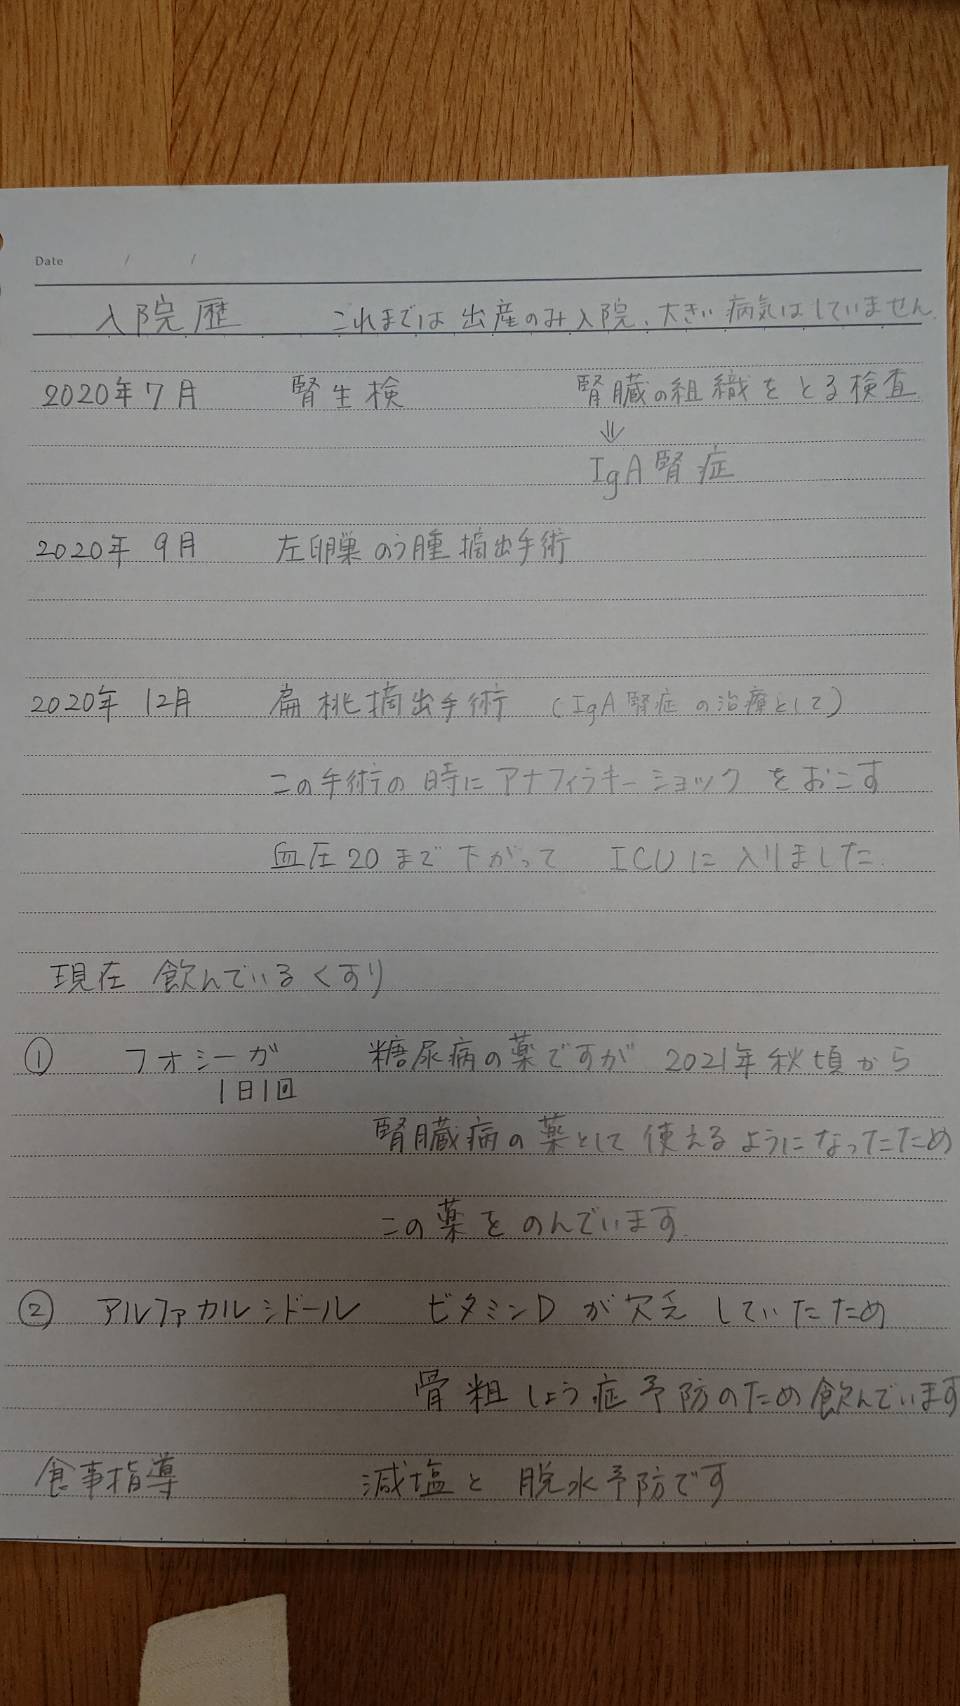 Date / /
入院歴 これまでは出産のみ入院、大きい病気はしていません。
2020年7月 腎生検 腎臓の組織をとる検査
⇓
IgA腎症
2020年 9月 左卵巣のう腫摘出手術
2020年 12月 扁桃摘出手術 (IgA腎症の治療として)
この手術の時にアナフィラキーショックをおこす
血圧20まで下がって ICUに入りました。
現在 飲んでいるくすり
① フォシーガ 糖尿病の薬ですが 2021年秋頃から
1日1回
腎臓病の薬として使えるようになったため
この薬をのんでいます。
② アルファカルシドール ビタミンDが欠乏していたため
骨粗しょう症予防のため飲んでいます
食事指導 減塩と 脱水予防です